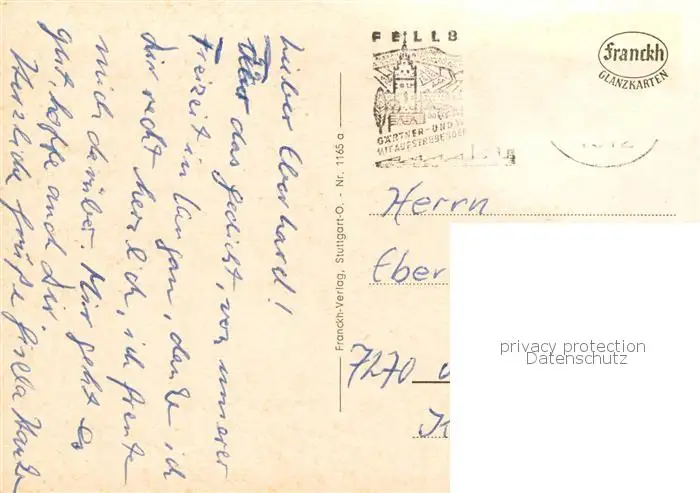 Lieber Eberhard!
Für das Gedicht, von unserer
Freizeit in Langau, danke ich
dir recht herzlich, ich freute
mich darüber. Mir geht es
gut, hoffe auch Dir.
Herzliche Grüße Gisela
Franckh-Verlag, Stuttgart-O. - Nr. 1165 a
FELLB
GÄRTNER- UND
MIT AUFSTREBENDER
Franckh
GLANZKARTEN
Herrn
Eber
7270
privacy protection
Datenschutz